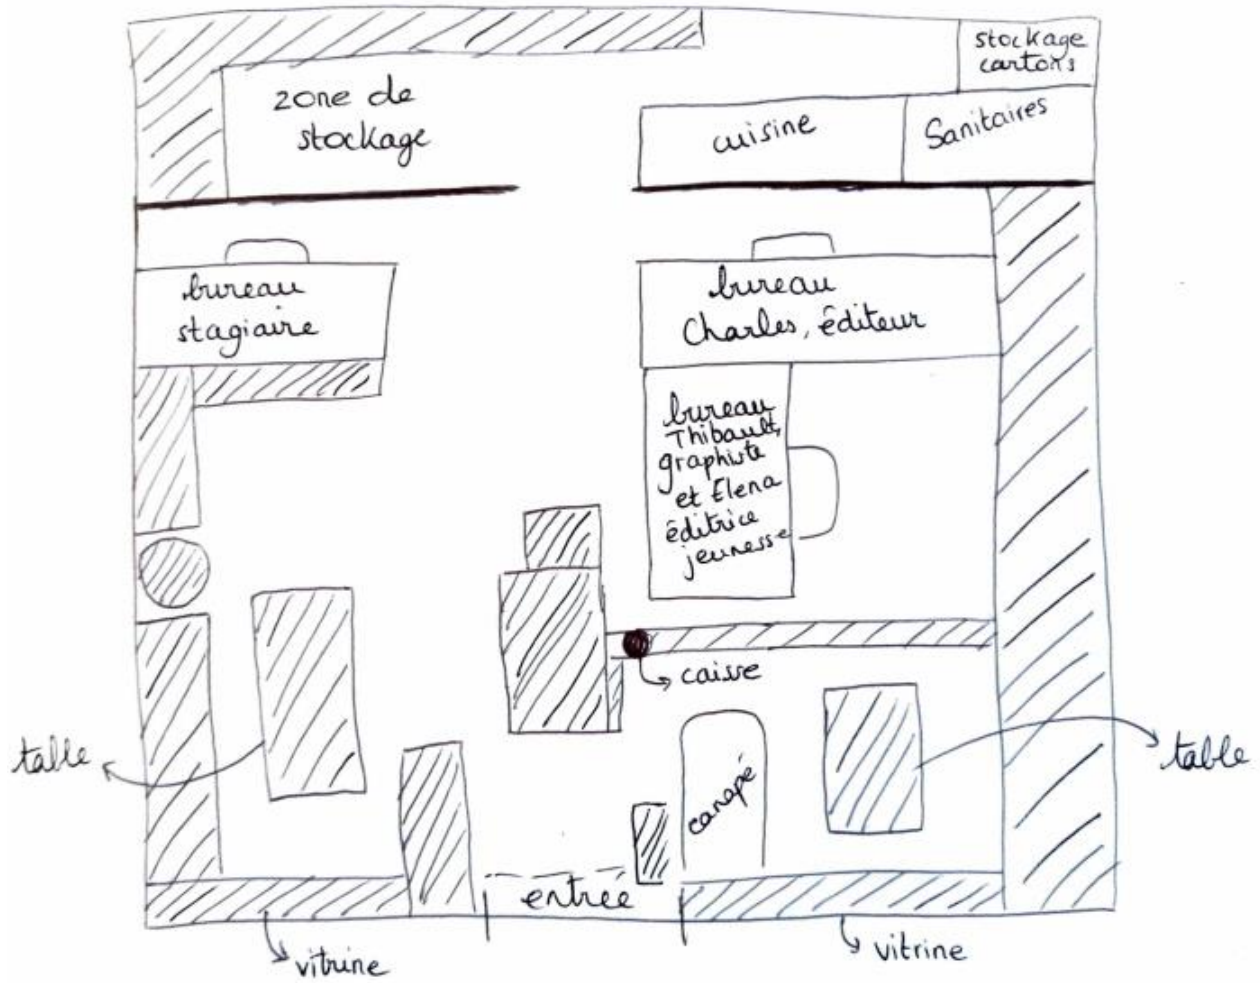 stockage
cartons
zone de
stockage
cuisine
Sanitaires
bureau
stagiaire
bureau
Charles, éditeur
bureau
Thibault,
graphiste
et Elena
éditrice
jeunesse
caisse
table
table
canapé
entrée
vitrine
vitrine